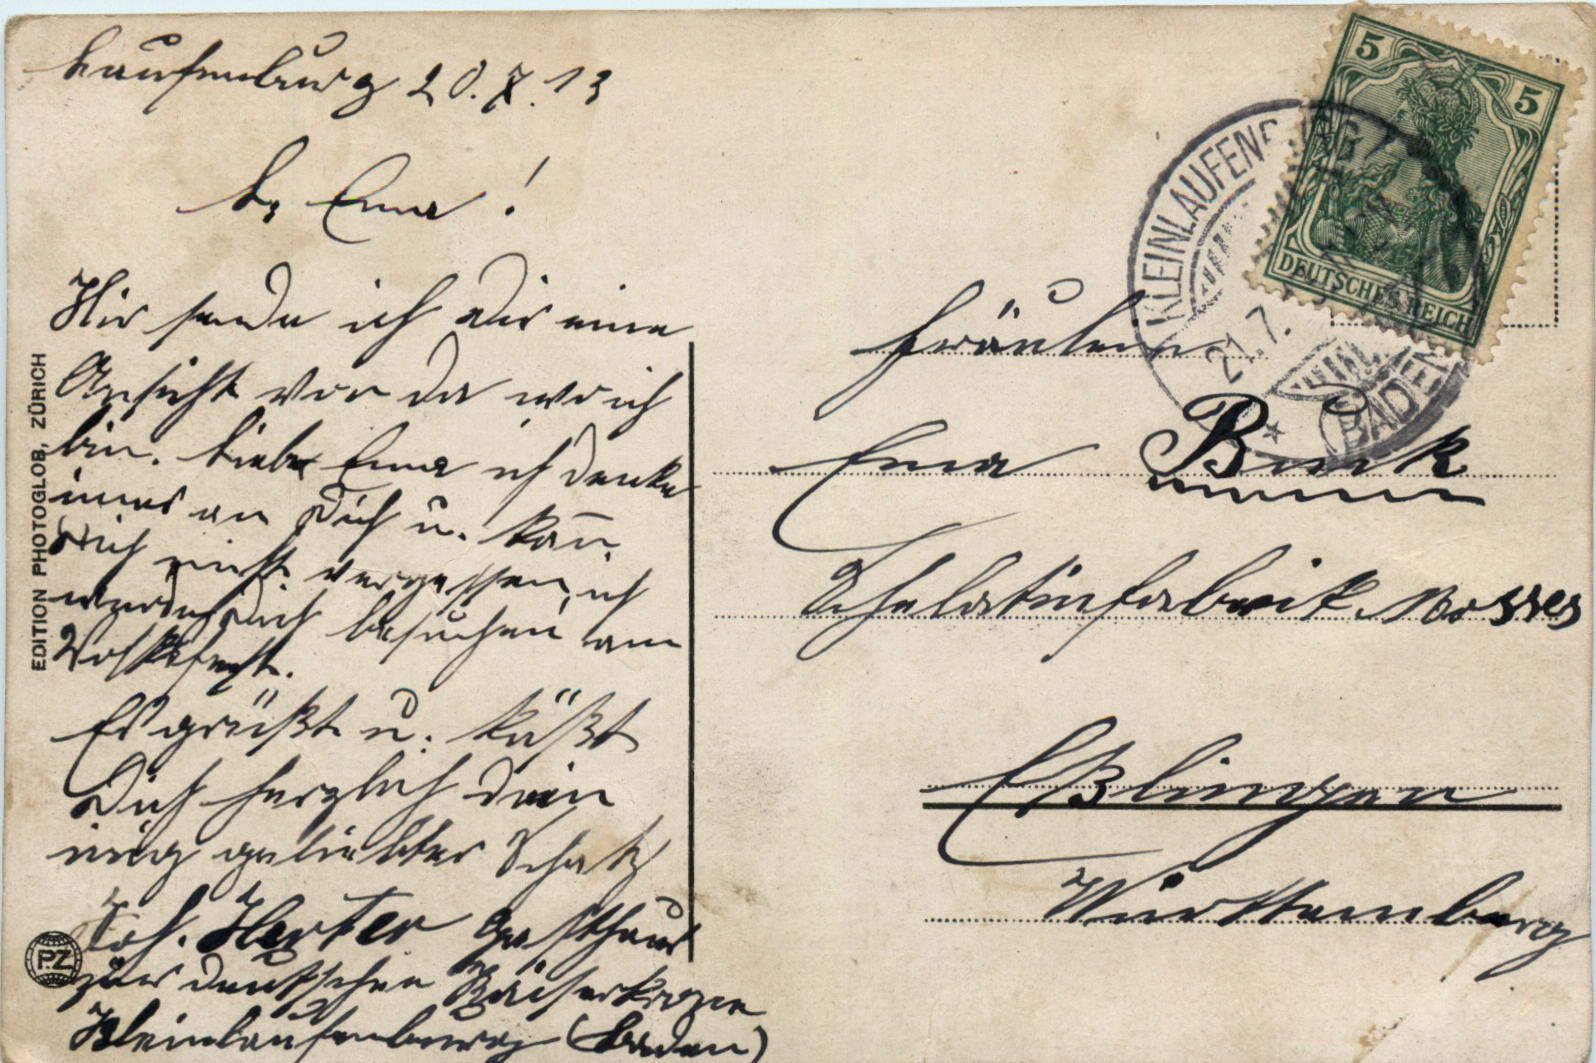 Laufenburg 20.7.13
L. Ema!
Hir sende ich Dir eine
Ansicht von da wo ich
bin. Liebe Ema ich denke
imer an Dich u. kan̄
Dich nicht vergessen, ich
werde Dich besuchen am
Volksfest.
Es grüßt u. küßt
Dich herzlich dein
inig geliebter Schatz
Joh. Herter Gasthaus
zur deutschen Kaiserkrone
Kleinlaufenburg (Baden)
EDITION PHOTOGLOB, ZÜRICH
P.Z
5
5
DEUTSCHES REICH
KLEINLAUFENBURG
21.7.
(BADEN)
Fräulein
Ema Buck
Schelatinfabrik
Eßlingen
Württemberg